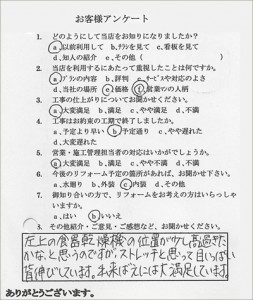 お客様アンケート
1. どのようにして当店をお知りになりましたか?
a.以前利用して b.チラシを見て c.看板を見て
d.知人の紹介 e.その他(
2. 当店を利用するにあたって重視したことは何ですか。
a.プランの内容 b.評判 c.サービスや対応のよさ
d.当社の場所 e.価格 f.営業マンの人柄
3. 工事の仕上がりについてお聞かせください。
a.大変満足 b.満足 c.やや不満 d.不満
4. 工事はお約束の工期で終了しましたか。
a.予定より早い b.予定通り c.やや遅れた
d.大変遅れた
5. 営業・施工管理担当者の対応はいかがでしょうか。
a.大変満足 b.満足 c.やや不満 d.不満
6. 今後のリフォーム予定の箇所があれば、お聞かせ下さい。
a.水廻り b.外装 c.内装 d.その他
7. 御知り合いの方で、リフォームをお考えの方はいらっしゃいますか。
a.はい b.いいえ
3. その他紹介・ご意見・ご感想など、お聞かせください。
左上の食器乾燥機の位置が少し高過ぎた
かな、と思うのですが、ストレッチと思って目いっぱい
背伸びしています。出来ばえには大満足しています。
ありがとうございます。